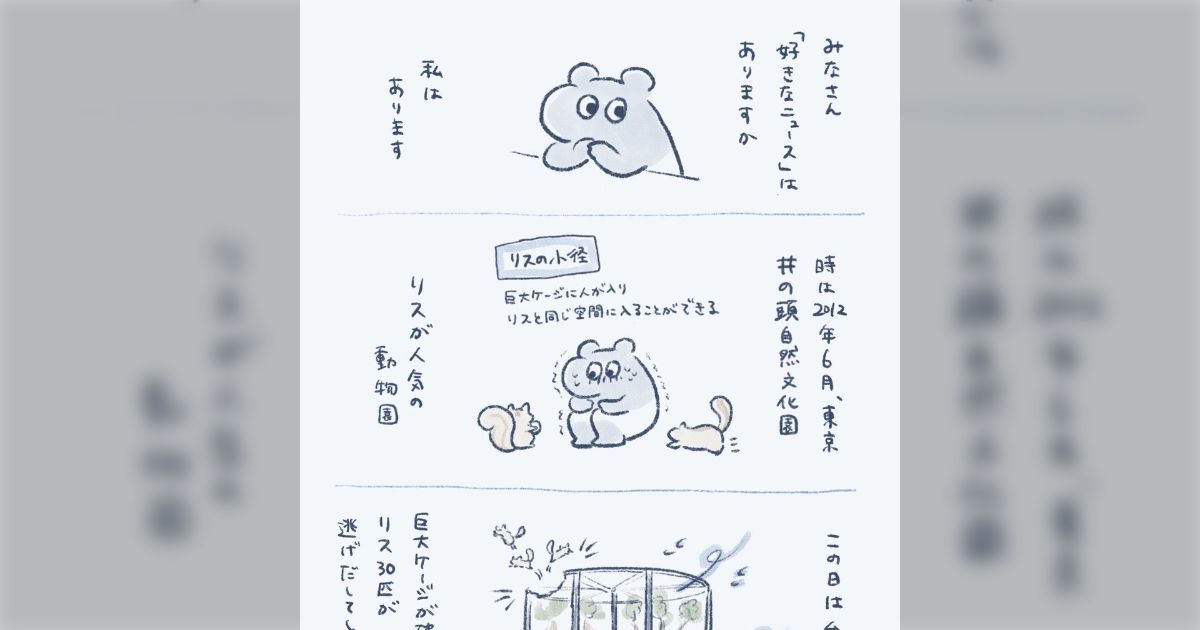 みなさん
「好きなニュース」は
ありますか
私は
あります
時は2012年6月、東京
井の頭自然文化園
リスの小径
巨大ケージに人が入り
リスと同じ空間に入ることができる
リスが人気の
動物園
この日は
巨大ケージが
リス30匹が
逃げだして